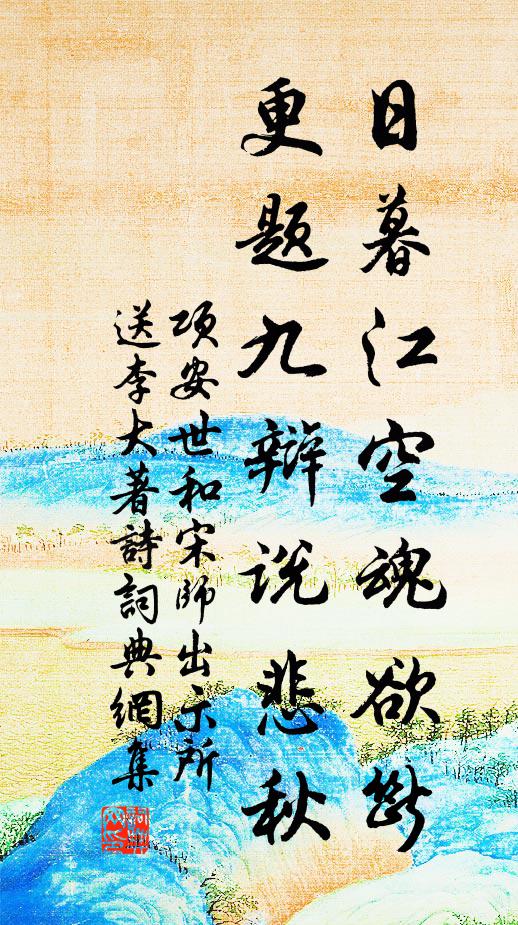 日暮江空魂欲断
更题九辩说悲秋
项安世和宋帅出示所
送李大著詩詞典網集